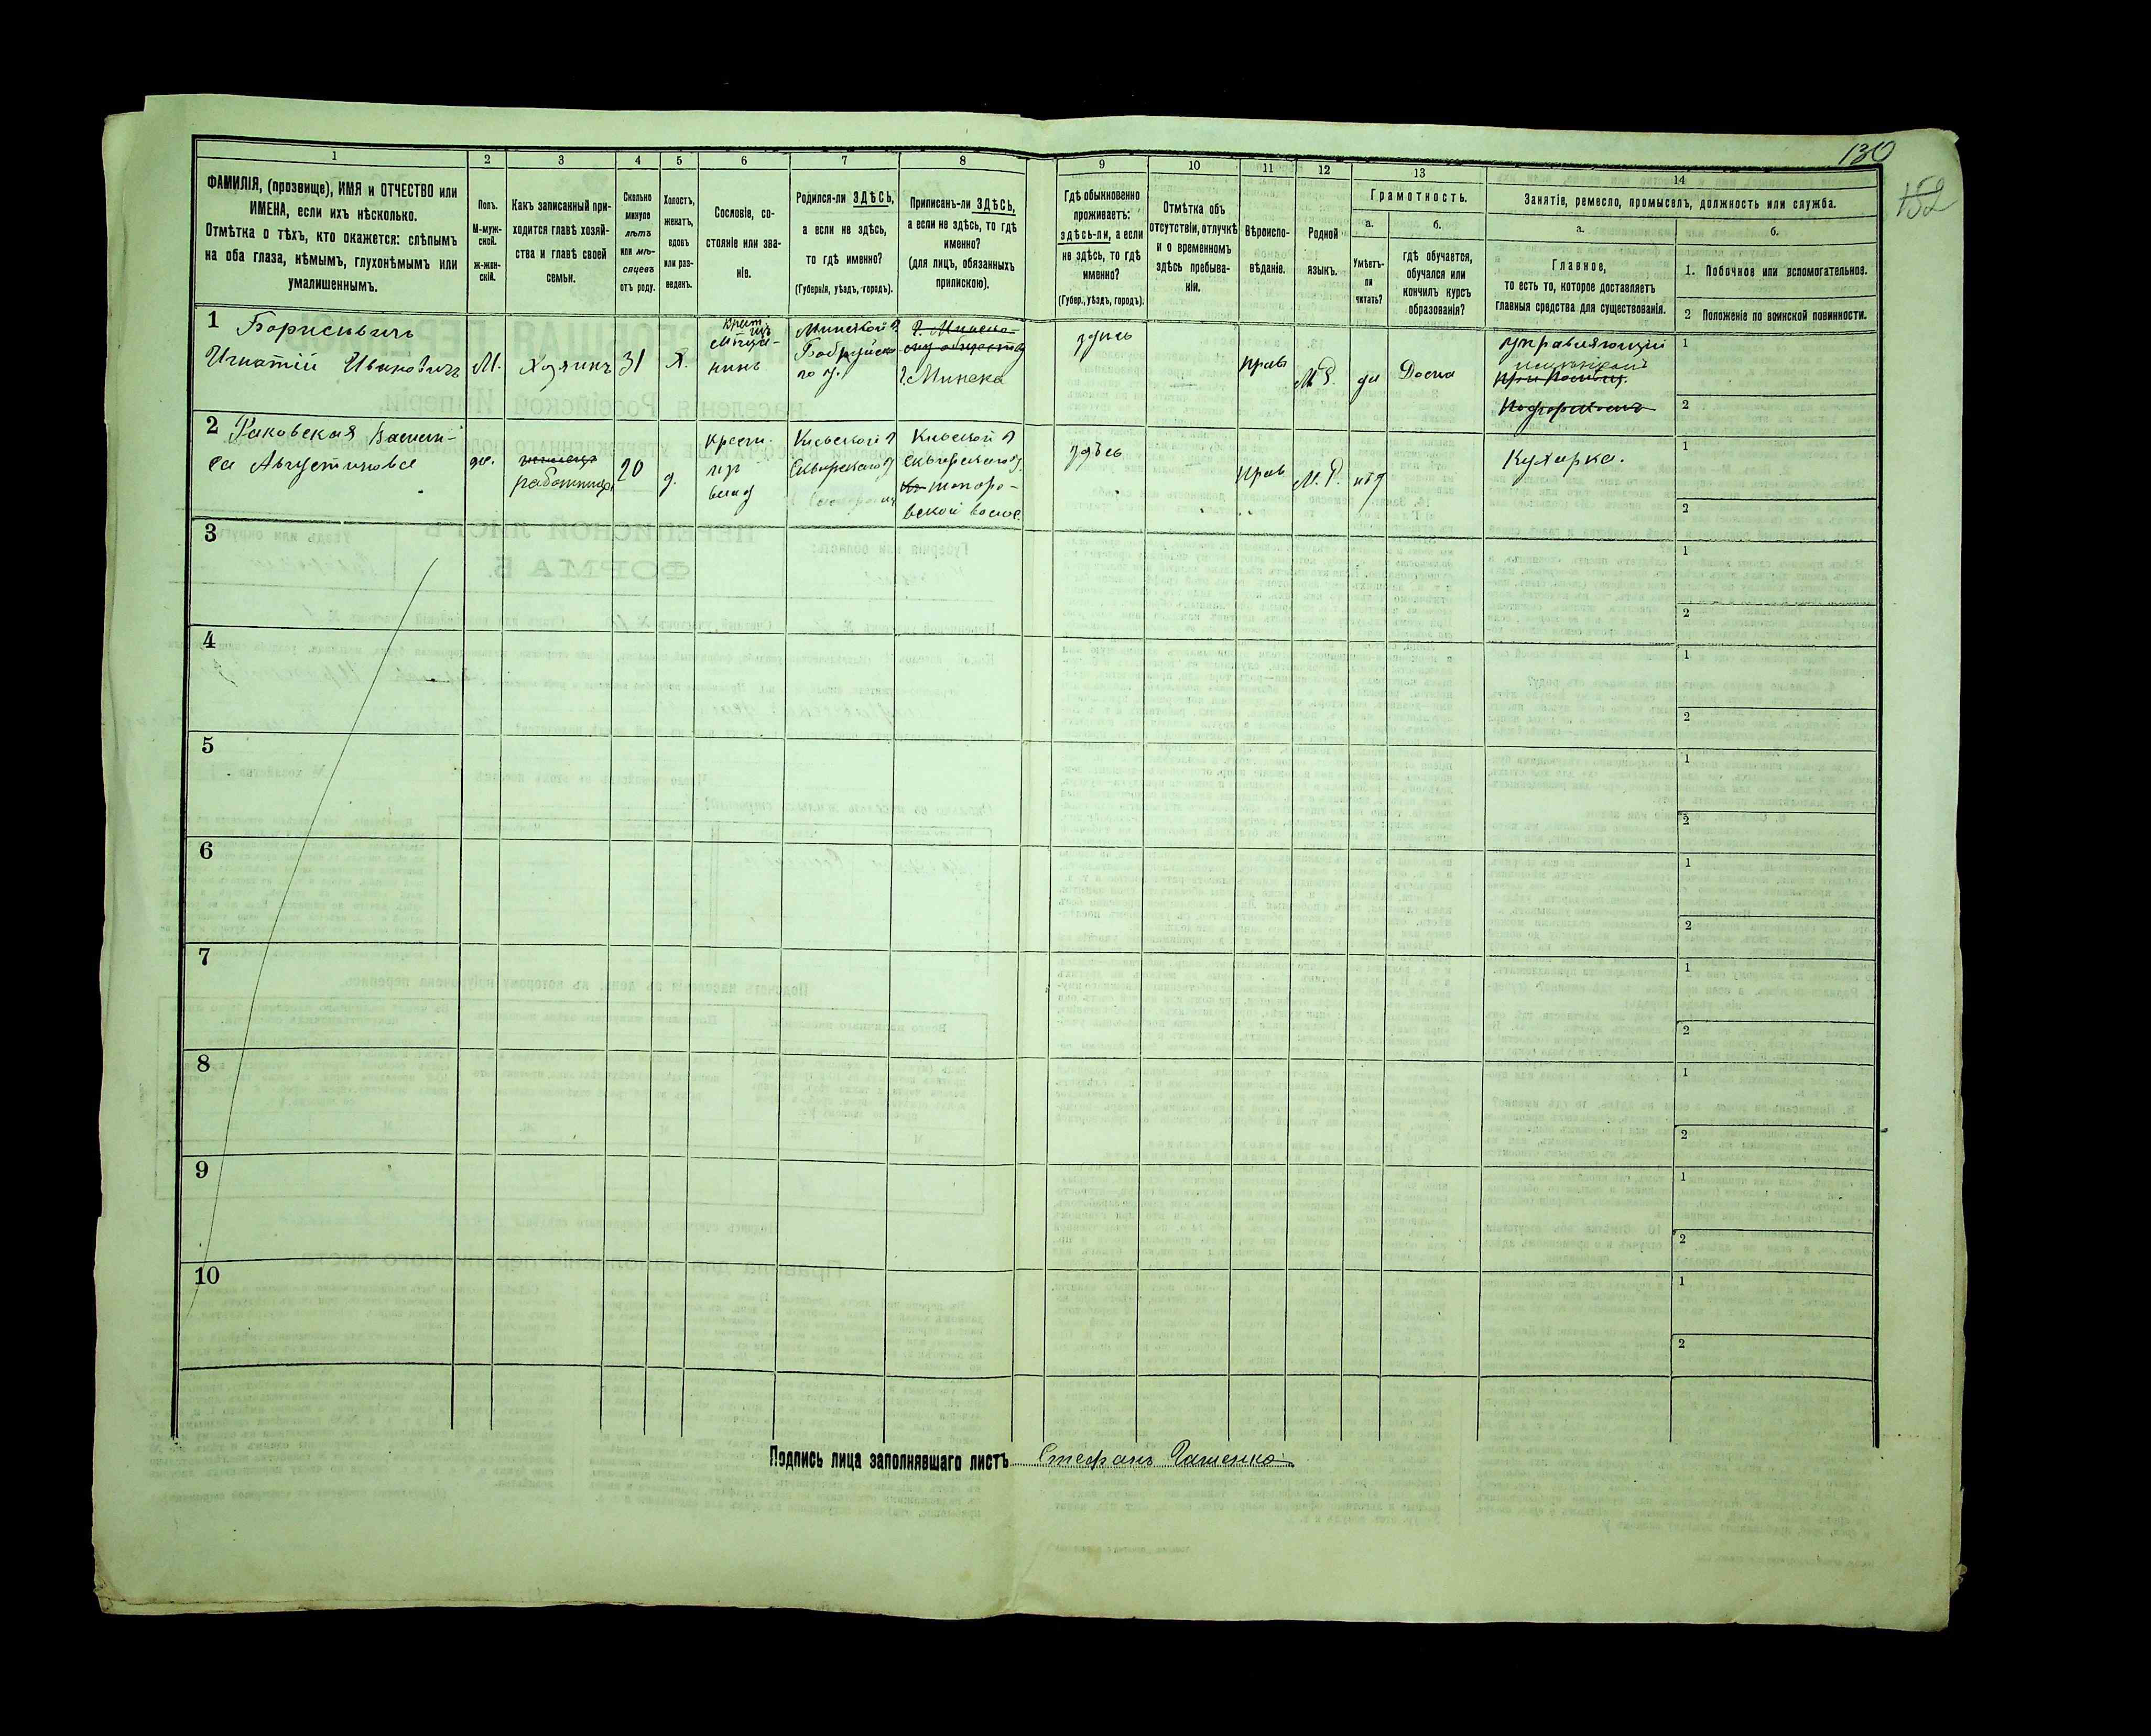 130
152
1 2 3 4 5 6 7 8 9 10 11 12 13 14
ФАМИЛІЯ, (прозвище), ИМЯ и ОТЧЕСТВО или
ИМЕНА, если ихъ нѣсколько.
Отмѣтка о тѣхъ, кто окажется: слѣпымъ
на оба глаза, нѣмымъ, глухонѣмымъ или
умалишеннымъ.
Полъ.
М-муж-
ской.
ж-жен-
скій.
Какъ записанный при-
ходится главѣ хозяй-
ства и главѣ своей
семьи.
Сколько
минуло
лѣтъ
или мѣ-
сяцевъ
отъ роду.
Холостъ,
женатъ,
вдовъ
или раз-
веденъ.
Сословіе, со-
стояніе или зва-
ніе.
Родился-ли ЗДѢСЬ,
а если не здѣсь,
то гдѣ именно?
(Губернія, уѣздъ, городъ).
Приписанъ-ли ЗДѢСЬ,
а если не здѣсь, то гдѣ
именно?
(для лицъ, обязанныхъ
припискою).
Гдѣ обыкновенно
проживаетъ:
здѣсь-ли, а если
не здѣсь, то гдѣ
именно?
(Губер., уѣздъ, городъ).
Отмѣтка объ
отсутствіи, отлучкѣ
и о временномъ
здѣсь пребыва-
ніи.
Вѣроиспо-
вѣданіе.
Родной
языкъ.
Грамотность.
а.
Умѣетъ-
ли
читать?
б.
гдѣ обучается,
обучался или
кончилъ курсъ
образованія?
Занятіе, ремесло, промыселъ, должность или служба.
а.
Главное,
то есть то, которое доставляетъ
главныя средства для существованія.
б.
1. Побочное или вспомогательное.
2 Положеніе по воинской повинности.
1 Борисевичъ
Игнатій Ивановичъ
М.
Хозяинъ
31
Х.
мѣща-
нинъ
Минской г
Бобруйска-
го у.
г. Минска
здѣсь
прав
М. Р.
да
Дома
управляющій
1
2
2 Раковская Васили-
са Августиновна
ж.
работница
20
д.
крест.
из
влад
Кіевской г
Сквирскаго у
Кіевской г
Сквирскаго у.
топоро-
вской волос.
здѣсь
прав
М. Р.
нѣт
Кухарка.
1
2
3
1
2
4
1
2
5
1
2
6
1
2
7
1
2
8
1
2
9
1
2
10
1
2
Подпись лица заполнявшаго листъ Стефанъ